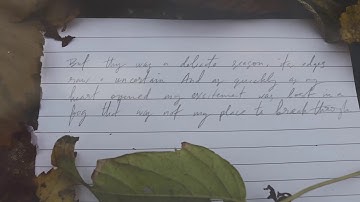 But this was a delicate season, its edges
raw & uncertain. And as quickly as my
heart opened my excitement was lost in a
fog that was not my place to break through